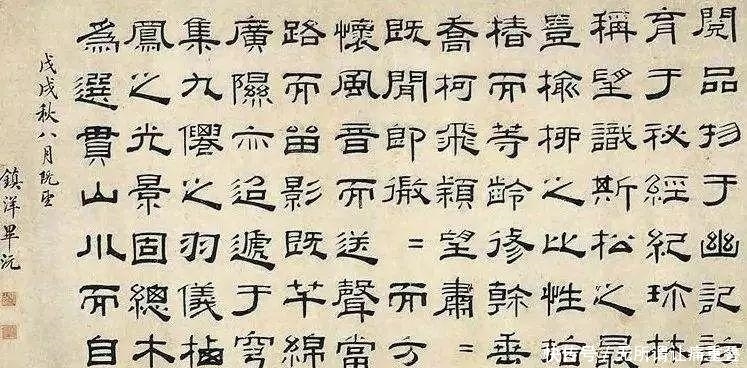 閱品物于幽記訪
育于秘經紀珎林
稱望識斯松之最
豈榆柳之比性指
椿而等齡修幹垂
喬柯飛穎望肅=
既閒即微=而方
懷風音而送聲當
路而畱影既芊綿
廣隰亦迢遞于穹
集九僊之羽儀栖
鳳之光景固總木
為選貫山川而自
戊戌秋八月既望
鎮洋畢沅